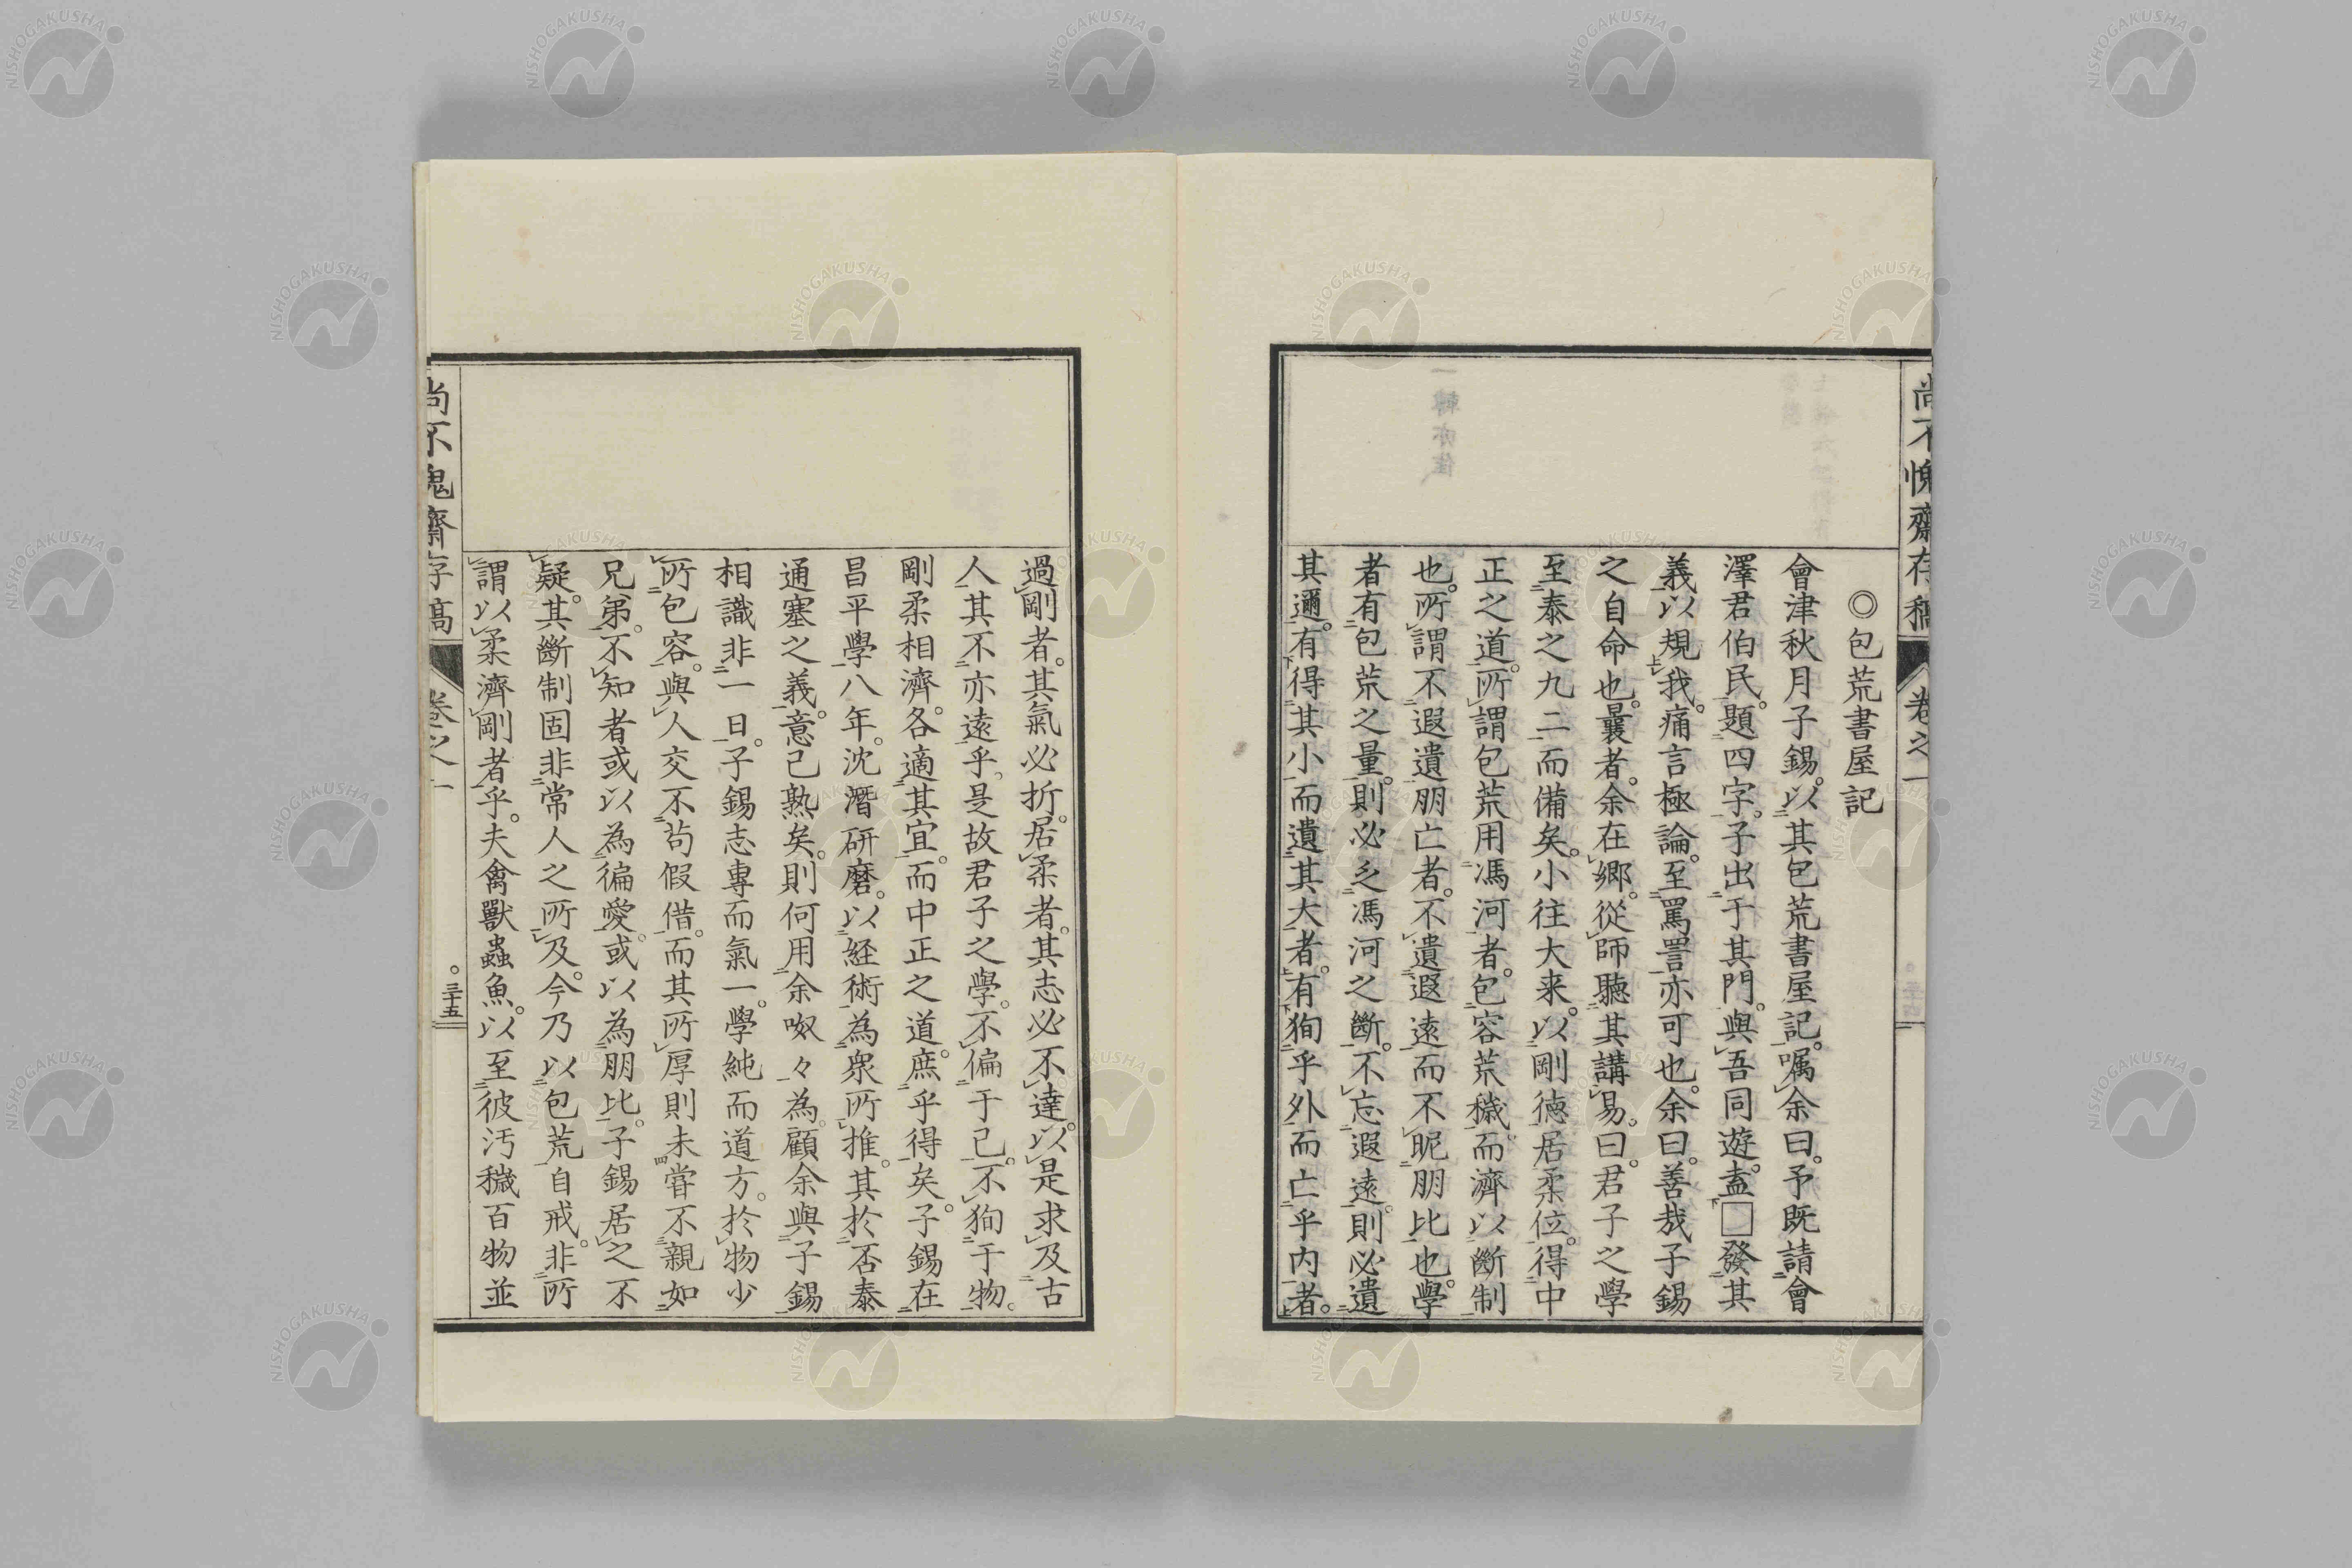 尚不愧齋存稿 卷之一
◎包荒書屋記
會津秋月子錫。以其包荒書屋記。嘱余曰。予既請會
澤君伯民。題四字。子出于其門。與吾同遊。盍□發其
義以規我。痛言極論。至罵詈亦可也。余曰。善哉子錫
之自命也。曩者。余在鄉。從師聽其講易。曰。君子之學
至泰之九二而備矣。小往大来。以剛德居柔位。得中
正之道。所謂包荒用馮河者。包容荒穢而濟以斷制
也。所謂不遐遺朋亡者。不遺遐遠而不昵朋比也。學
者有包荒之量。則必乏馮河之斷。不忘遐遠。則必遺
其邇。有得其小而遺其大者。有徇乎外而亡乎内者。
過剛者。其氣必折。居柔者。其志必不達。以是求及古
人。其不亦遠乎。是故君子之學。不偏于己。不徇于物。
剛柔相濟。各適其宜。而中正之道。庶乎得矣。子錫在
昌平學八年。沈潛研磨。以経術為衆所推。其於否泰
通塞之義。意已熟矣。則何用余呶々為。顧余與子錫
相識非一日。子錫志專而氣一。學純而道方。於物少
所包容。與人交不苟假借。而其所厚則未嘗不親如
兄弟。不知者或以為徧愛。或以為朋比。子錫居之不
疑。其斷制固非常人之所及。今乃以包荒自戒。非所
謂以柔濟剛者乎。夫禽獸蟲魚。以至彼汚穢百物並
尚不愧齋存稿 卷之一 。三十五
NISHOGAKUSHA